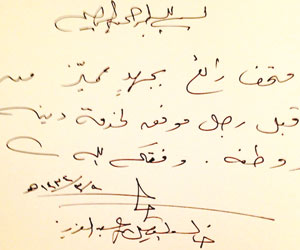 بسم الله الرحمن الرحيم
متحف رائع بجهد مميز من
قبل رجل موفقه لخدمة دينه
ووطنه . وفقك الله
١٤٣٤/٣/٩هـ